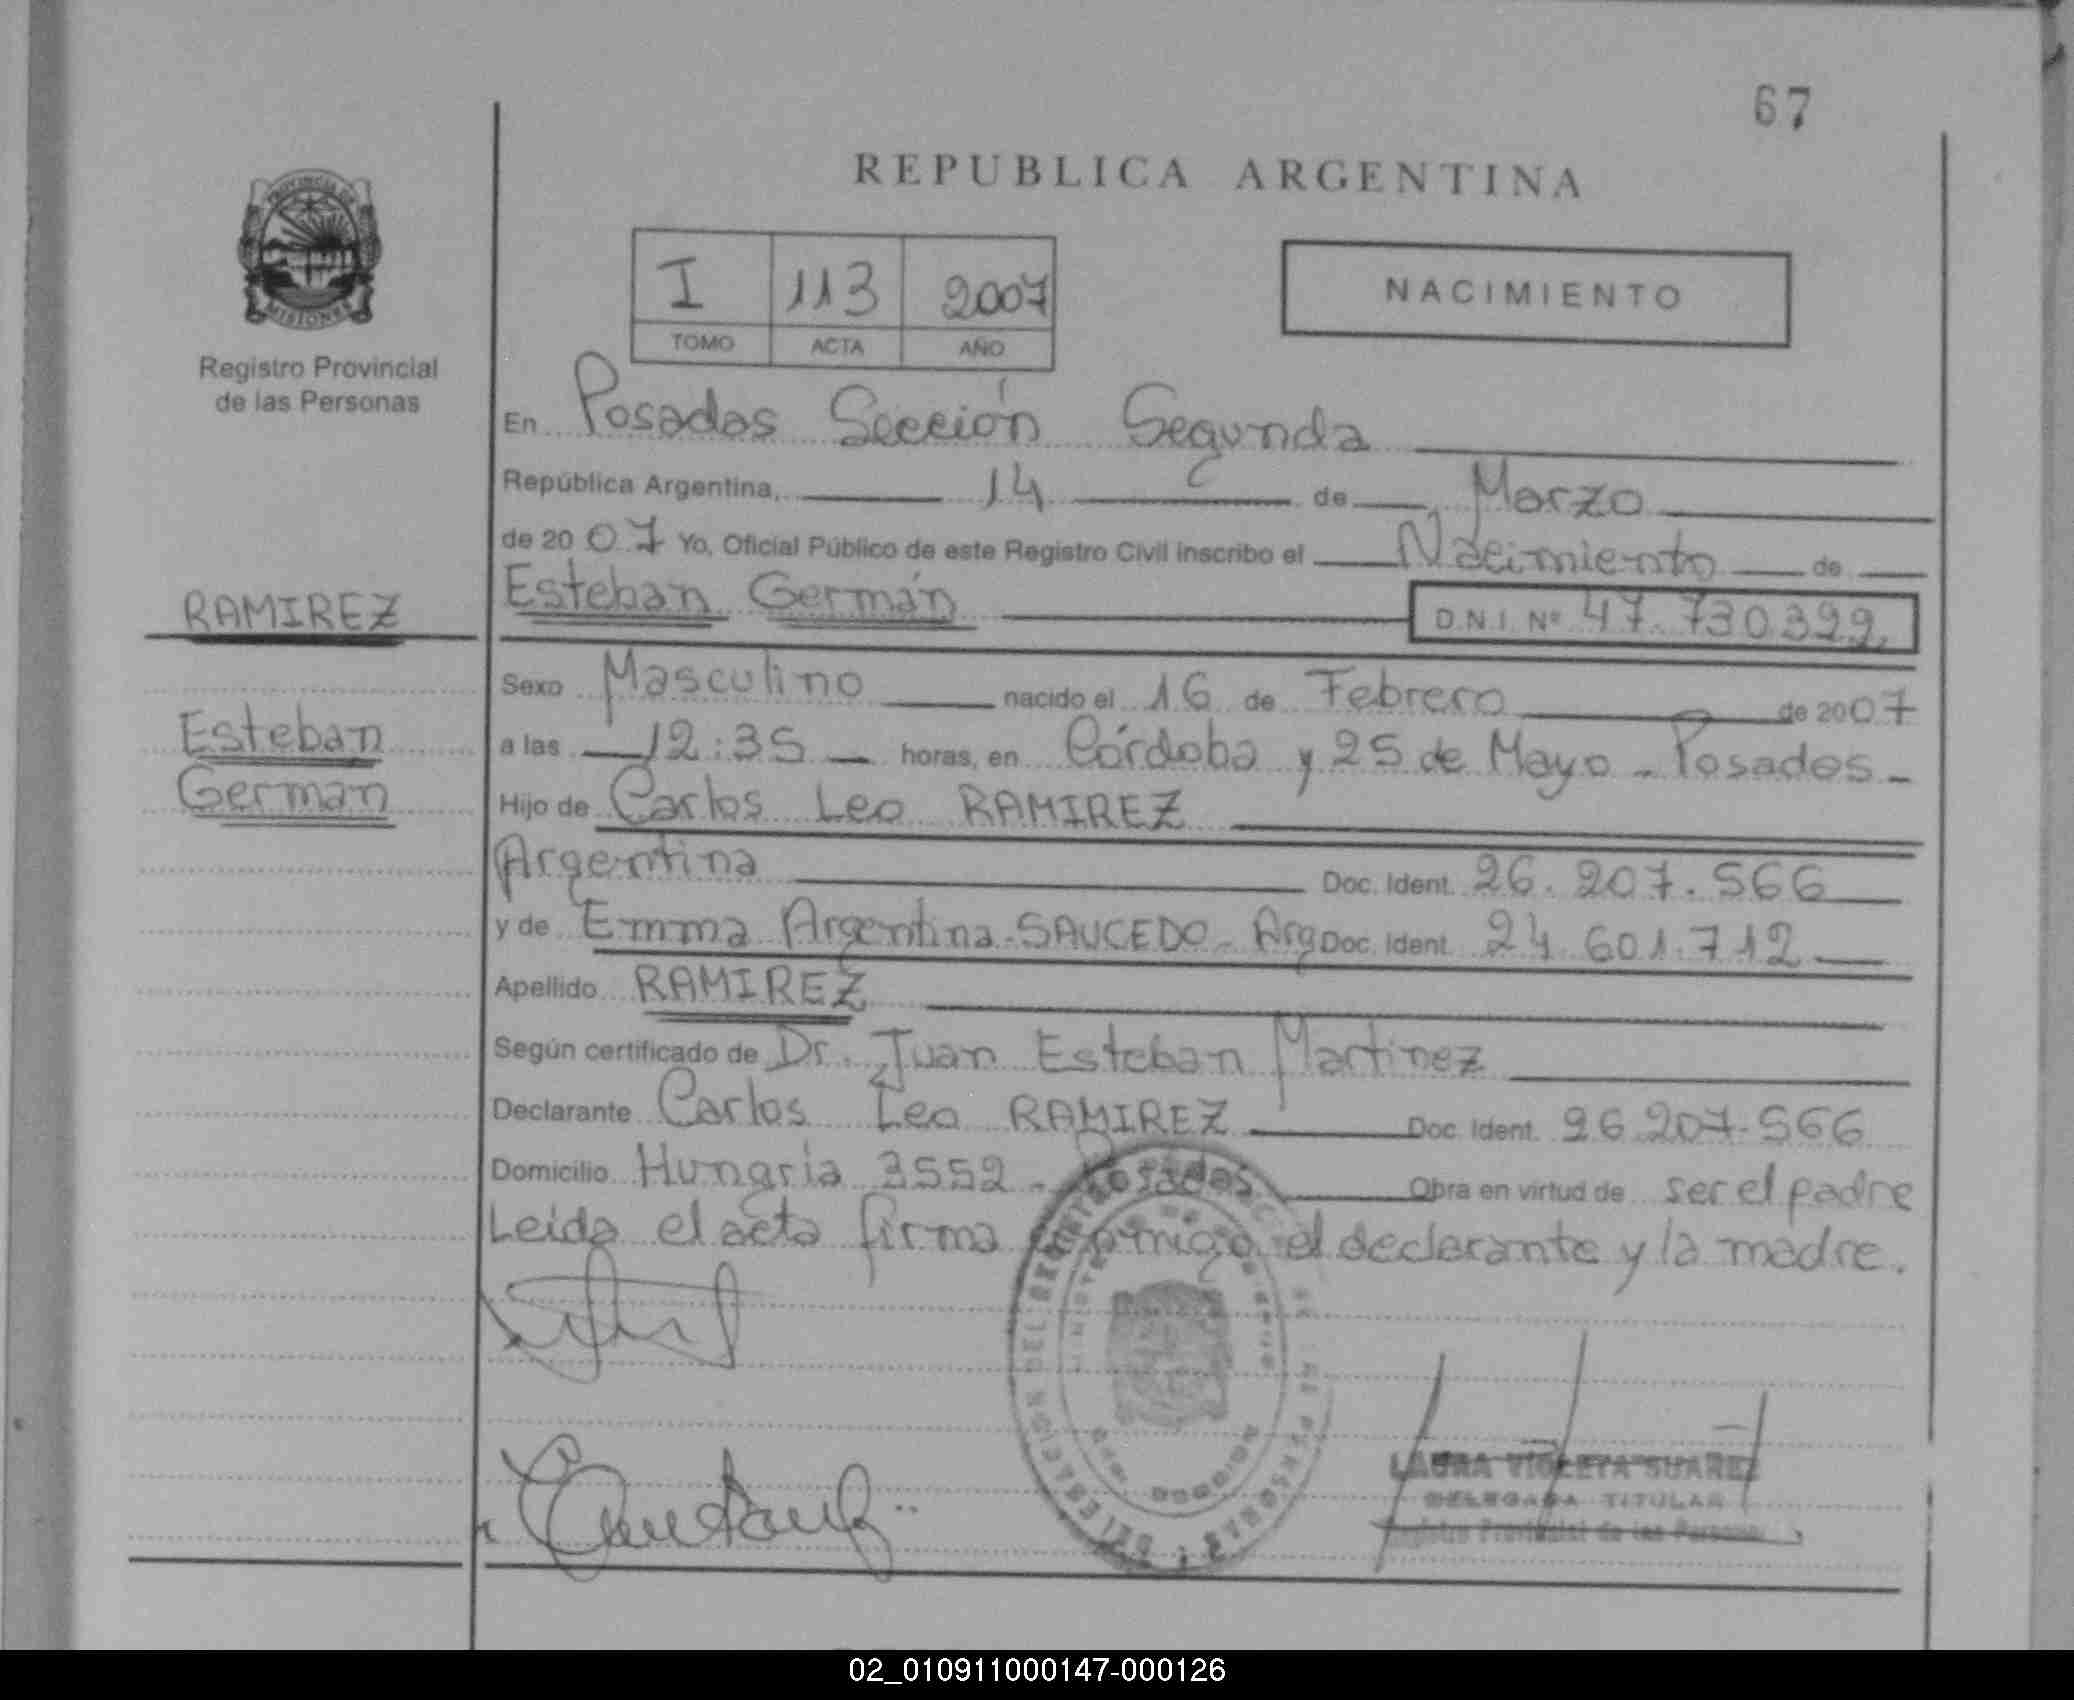 67
REPUBLICA ARGENTINA
PROVINCIA DE
MISIONES
Registro Provincial
de las Personas
I 113 2007
TOMO ACTA AÑO
NACIMIENTO
En Posadas Sección Segunda
República Argentina, 14 de Marzo
de 2007 Yo, Oficial Público de este Registro Civil inscribo el Nacimiento de
Esteban Germán D.N.I. Nº 47.730.399
RAMIREZ
Esteban
German
Sexo Masculino nacido el 16 de Febrero de 2007
a las 12:35 horas, en Córdoba y 25 de Mayo - Posadas -
Hijo de Carlos Leo RAMIREZ
Argentina Doc. Ident. 26.207.566
y de Emma Argentina SAUCEDO - Arg Doc. Ident. 24.601.712
Apellido RAMIREZ
Según certificado de Dr. Juan Esteban Martinez
Declarante Carlos Leo RAMIREZ Doc. Ident. 26.207.566
Domicilio Hungria 3552 - Posadas Obra en virtud de ser el padre
Leida el acta firma conmigo el declarante y la madre.
LAURA VIOLETA SUAREZ
DELEGADA TITULAR
Registro Provincial de las Personas
02_010911000147-000126